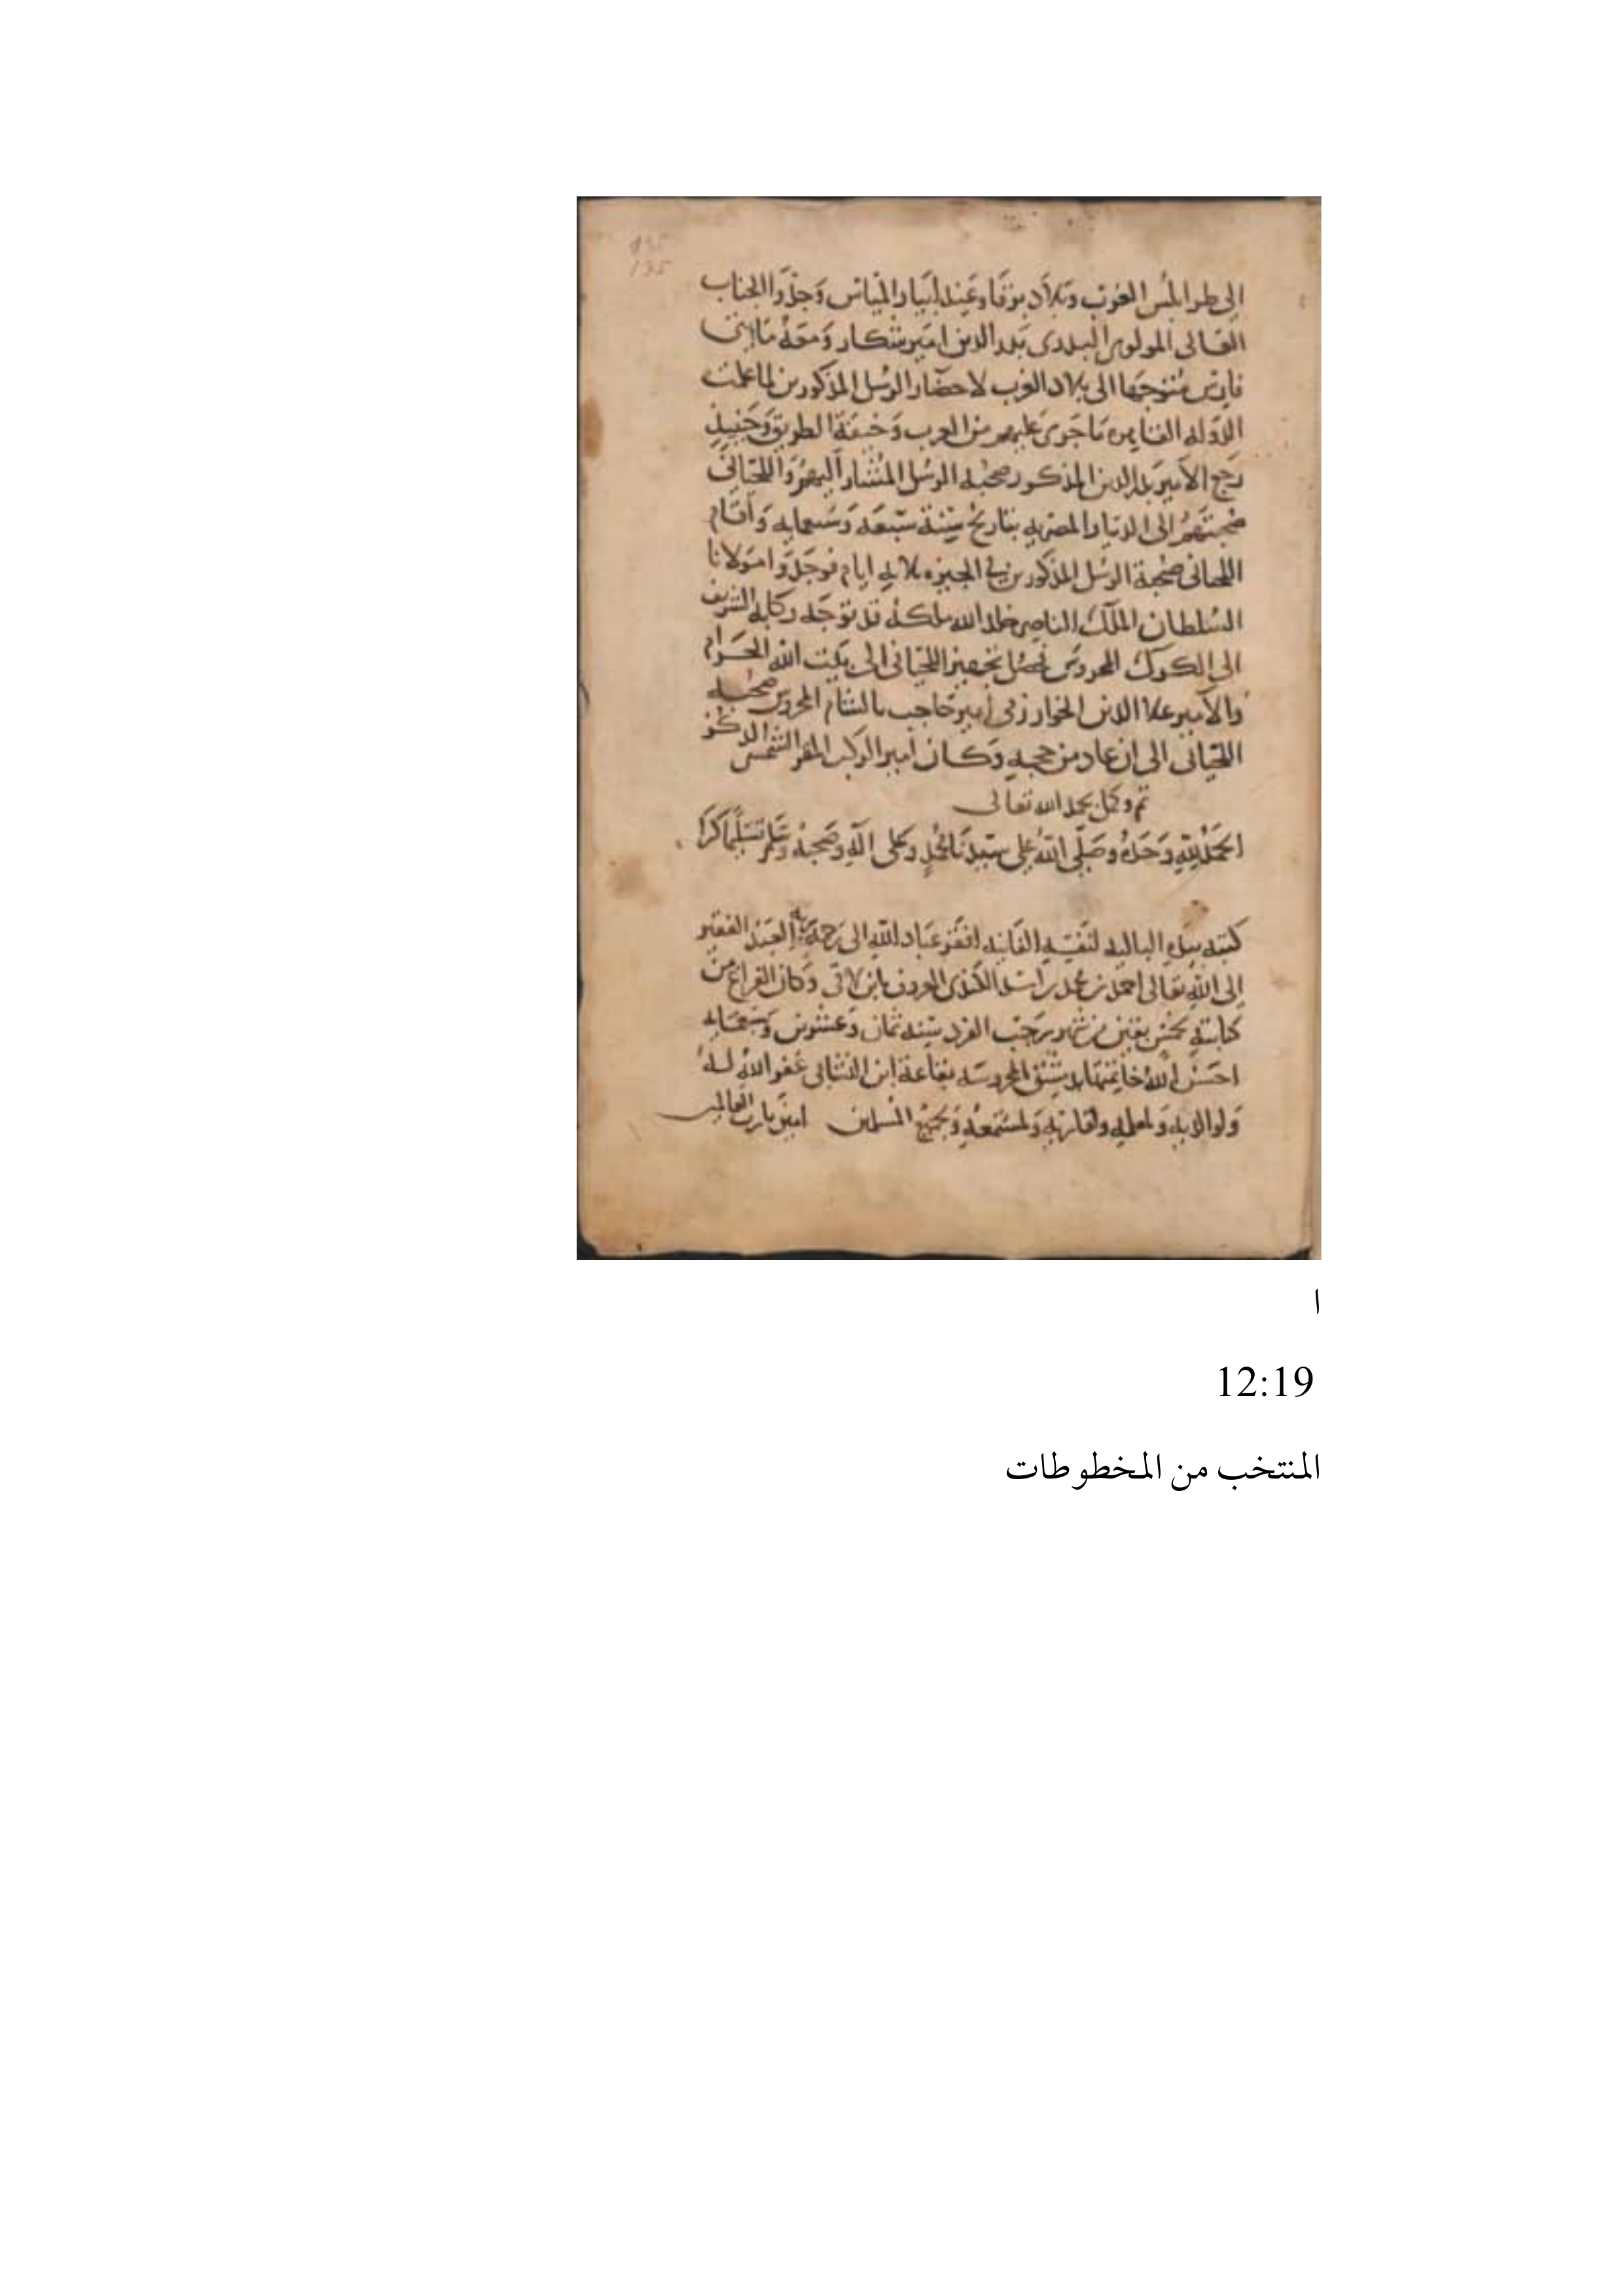 135
135
الى طرابلس الغرب وبلاد برقا وعند ابيار المياس وجدوا الجناب
العالى المولوى البدرى بدر الدين امير شكار ومعه مايتى
فارس متوجها الى بلاد الغرب لاحضار الرسل المذكورين لما علمت
الدوله القاهره ما جرى عليهم من العرب وخيفة الطريق وحينيذ
رجع الامير بدر الدين المذكور صحبه الرسل المشار اليهم واللحيانى
صحبتهم الى الديار المصريه بتاريخ سنة سبعه وسبعمايه واقام
اللحيانى صحبة الرسل المذكورين فى الجيزه ثلاثه ايام فوجدوا مولانا
السلطان الملك الناصر خلد الله ملكه قد توجه ركابه الشريف
الى الكرك المحروس فحصل تجهيز اللحيانى الى بيت الله الحرام
والامير علا الدين الخوارزمى امير حاجب بالشام المحروس صحبه
اللحيانى الى ان عاد من حجه وكان امير الركب المقر الشمس
تم وكمل بحمد الله تعالى
الحمد لله وحده وصلى الله على سيدنا محمد وعلى اله وصحبه وسلم تسليما
كتبه بيده الباليه لنفسه الفانيه افقر عباد الله الى رحمة ربه العبد الفقير
الى الله تعالى احمد بن محمد بن المعروف وكان الفراغ من
كتابته لخمس بقين من شهر رجب الفرد سنه ثمان وعشرين وسبعمايه
احسن الله خاتمتها بدمشق المحروسه بقاعة ابن غفر الله له
ولوالديه ولقاريه ولمستمعه ولجميع المسلمين امين يا رب العالمين
ا
12:19
المنتخب من المخطوطات